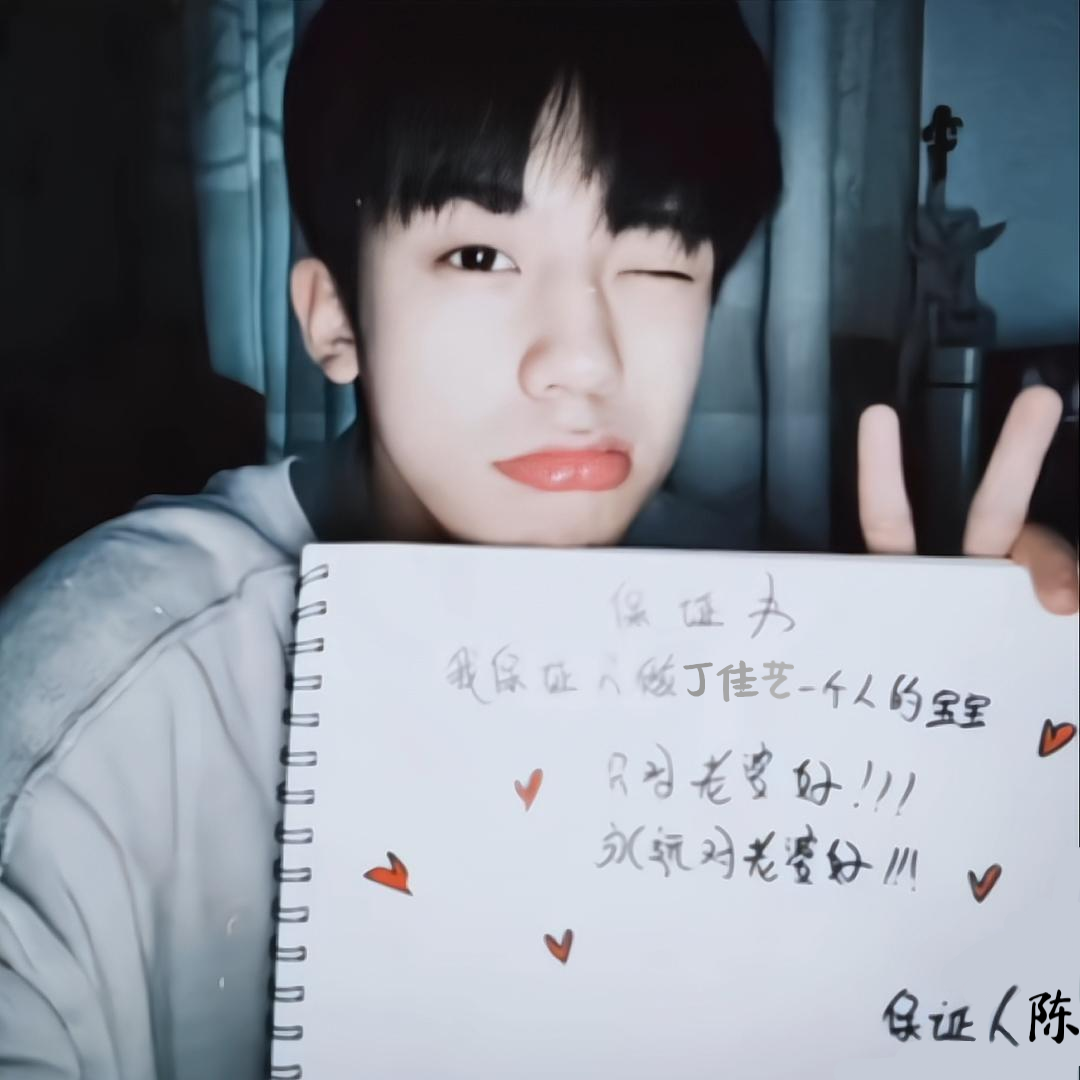 保证书
我保证只做丁佳艺一个人的宝宝
只对老婆好!!!
永远对老婆好!!!
保证人陈